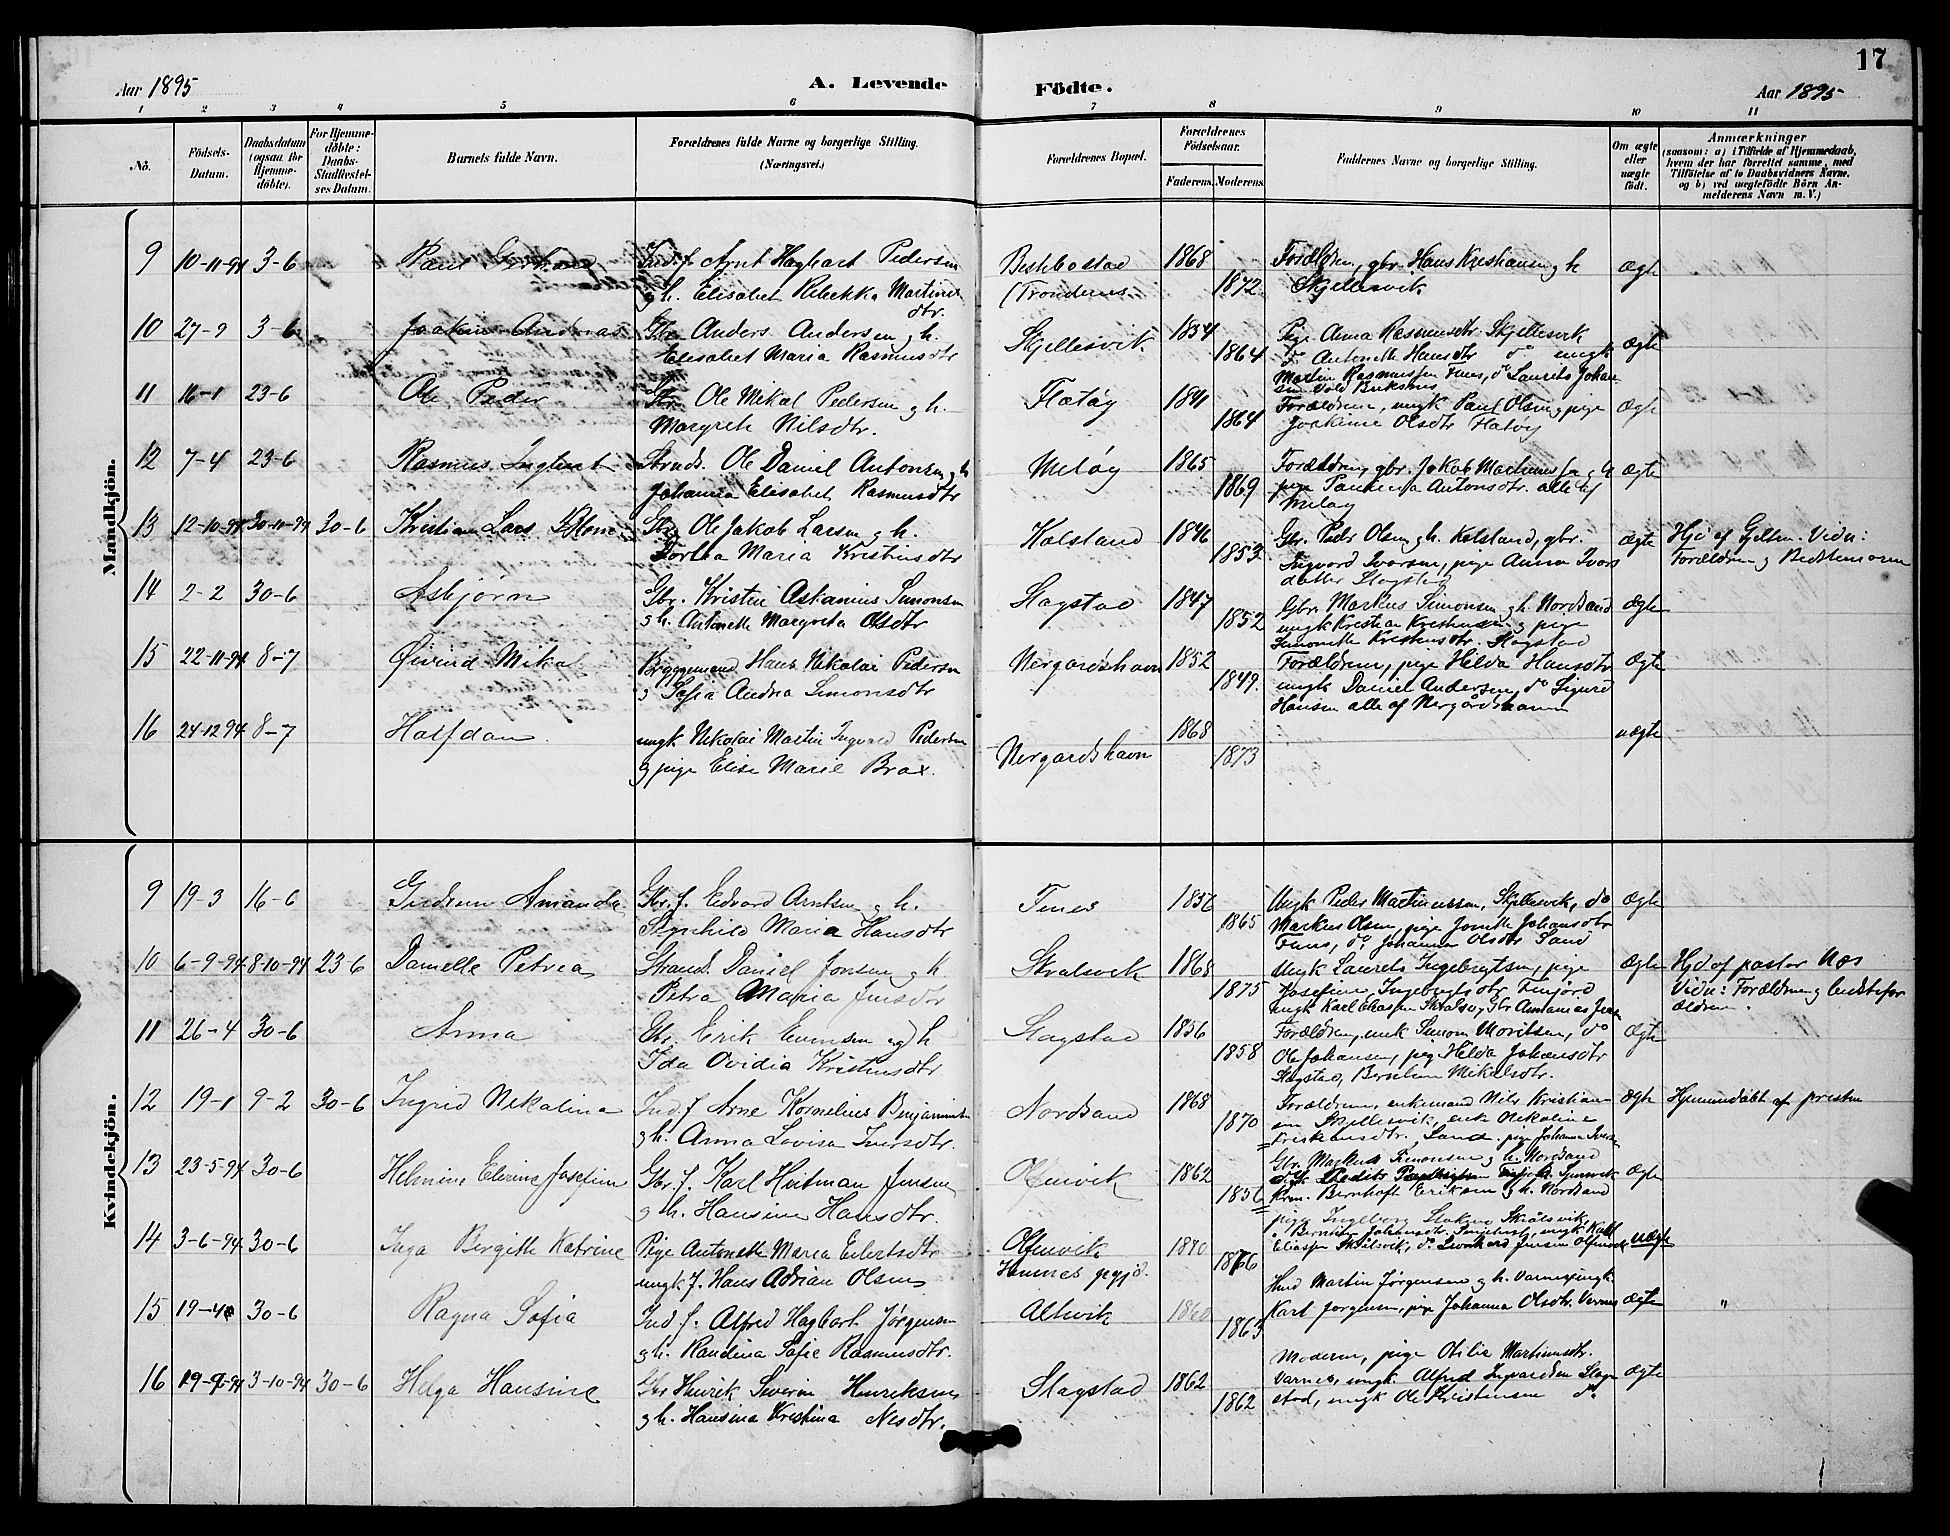 17
Aar 1895
A. Levende Födte.
Aar 1895
1 2 3 4 5 6 7 8 9 10 11
No.
Födsels-Datum.
Daabsdatum (ogsaa for Hjemme-döbte).
For Hjemme-döbte: Daabs-Stadfæstel-ses Datum.
Barnets fulde Navn.
Forældrenes fulde Navne og borgerlige Stilling.
(Næringsvei.)
Forældrenes Bopæl.
Forældrenes Födselsaar.
Faderens. Moderens.
Faddernes Navne og borgerlige Stilling.
Om ægte eller uægte födt.
Anmærkninger
(saasom: a) i Tilfælde af Hjemmedaab,
hvem der har forrettet samme, med
Tilföielse af to Daabsvidners Navne,
og b) ved uægtefödte Börn An-
melderens Navn m. V.)
Mandkjön.
9 10-11-94 3-6 Ind. f. Arnt Hagbart Pedersen 1868 Forældrene, gbr. Hans Kristiansen g h ægte
g h. Elisabet Rebekka Martines dtr. (Trondenes 1872 Skjellesvik
10 27-9 3-6 Joakim Andreas Gbr. Anders Andersen g h. Skjellesvik 1834 Pige Anna Rasmusdtr Skjellesvik ægte
Elisabet Maria Rasmusdtr 1864 do Antonette Hansdtr do ungk
Martin Rasmussen Finnes, do Laurits Johan-
11 16-1 23-6 Ole Peder Gbr Ole Mikal Pedersen g h. Flatøy 1841 Forældrene, ungk Paul Olsen g pige ægte
Margrete Nilsdtr. 1864 Joakime Olsdtr Flatøy
12 7-4 23-6 Rasmus Ingbert Strands. Ole Daniel Antonsen g h Meløy 1865 Forældrene gbr. Jakob g h ægte
Johanna Elisabet Rasmusdtr 1869 pige Antonsdtr. alle af
Meløy
13 12-10-94 30-11-94 30-6 Kristian Lars Gbr Ole Jakob Larsen g h. Kolstand 1846 Gbr. Peder Olsen g h. Kolstand, gbr. ægte Hjd af Vidn:
Dortea Maria Kristensdtr 1853 Ingvard Ivarsen, pige Anna Ivars Forældrene g Bedstemoren
datter Slagstad
14 2-2 30-6 Asbjørn Gbr. Kristen Askanius Simonsen Slagstad 1847 Gbr. Markus Simonsen g h. Nordsand ægte
g h. Antonette Margreta Olsdtr 1852 ungk Kristian Kristensen g pige
Simonette Kristensdtr. Slagstad
15 22-11-94 8-7 Øivind Mikal Bryggemand Hans Nikolai Pedersen Nergårdshavn 1852 Forældrene, pige Hilda Hansdtr ægte
g Sofia Andrea Simonsdtr 1849. ungk Daniel Andersen, do Sigurd
Hansen alle af Nergårdshavn
16 24-12 94 8-7 Halfdan ungk Nikolai Martin Ingvard Pedersen Nergårdshavn 1868 uægte
g pige Elise Marie Brox. 1873
Kvindekjön.
9 19-3 16-6 Gudrun Amanda Gbr. f. Edvard Arntsen g h. Finnes 1856 Ungk Peder Martinussen, Skjellesvik, do ægte
Maria Hansdtr 1865 Markus Olsen, pige Johansdtr
Finnes, do Johanna Olsdtr Sand
10 6-9-94 8-10-94 23-6 Danielle Petrea Strands. Daniel Jensen g h 1868 Ungk Laurets Ingebrigtsen, pige ægte Hjd af pastor Næs
Petra Maria Jensdtr 1875 Josefine Ingebrigtsdtr Finfjord Vidn: Forældrene g bedstefor
ungk Karl Eliassen ældrene.
11 26-4 30-6 Anna Gbr. Erik Evensen og h Slagstad 1856 Forældrene, enk Simon Moritsen, do ægte
Ida Ovidia Kristensdtr 1858 Ole Johansen, pige Helda Johansdtr
Slagstad, Mikalsdtr.
12 19-1 9-2 30-6 Ingrid Nikolina Ind. f. Arne Kornelius Benjaminsen Nordsand 1868 Forældrene, enkemand Nils Kristian ægte Hjemmedøbt af presten
g h. Anna Lovisa Iversdtr. 1870 sen Skjellesvik, enk Nikoline
Kristiansdtr. Sand. pige Johanna Ivers
13 23-5-94 30-6 Helmine Elvine Josefine Gbr. f. Karl Hartman Jensen 1862 Gbr. Markus Simonsen g h. Nordsand ægte
g h. Hansine Hansdtr. 1856 Bernhoft Eriksen g h. Nordsand
14 3-6-94 30-6 Inga Bergitte Katrine Pige Antonette Maria Eilertsdtr 1870 Eliassen uægte
ungk f. Hans Adrian Olsen 1866
15 19-4 30-6 Ragna Sofia Ind f. Alfred Hagbart Jørgensen Altevik 1860 Ind Martin Jørgensen g h. Varnes ungk. ægte "
g h. Randina Sofie Rasmusdtr. 1863 Karl Jørgensen, pige Johanna Olsdtr. Varnes
16 19-9-94 3-10-94 30-6 Helga Hansine Gbr Henrik Severin Henriksen Slagstad 1862 Moderen, pige Otilie Martinusdtr. ægte
g h. Hansina Kristina 1862 Varnes, ungk. Alfred Ingvardsen Slag-
stad, ungk Ole Kristensen do